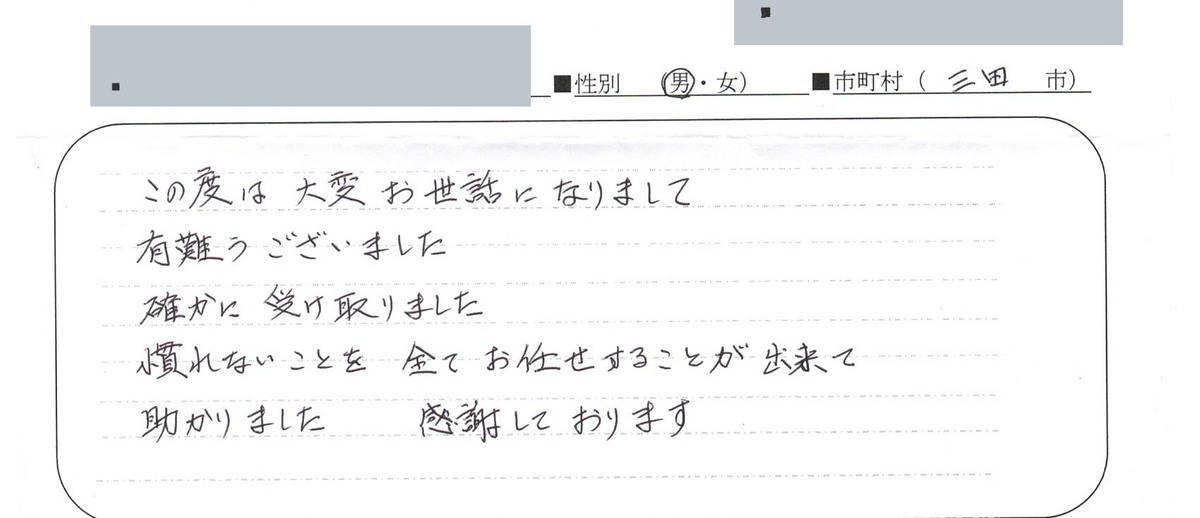 ■性別 (男・女) ■市町村 ( 三田 市)
この度は 大変 お世話に なりまして
有難う ございました
確かに 受け取りました
慣れないことを 全て お任せすることが 出来て
助かりました 感謝して おります